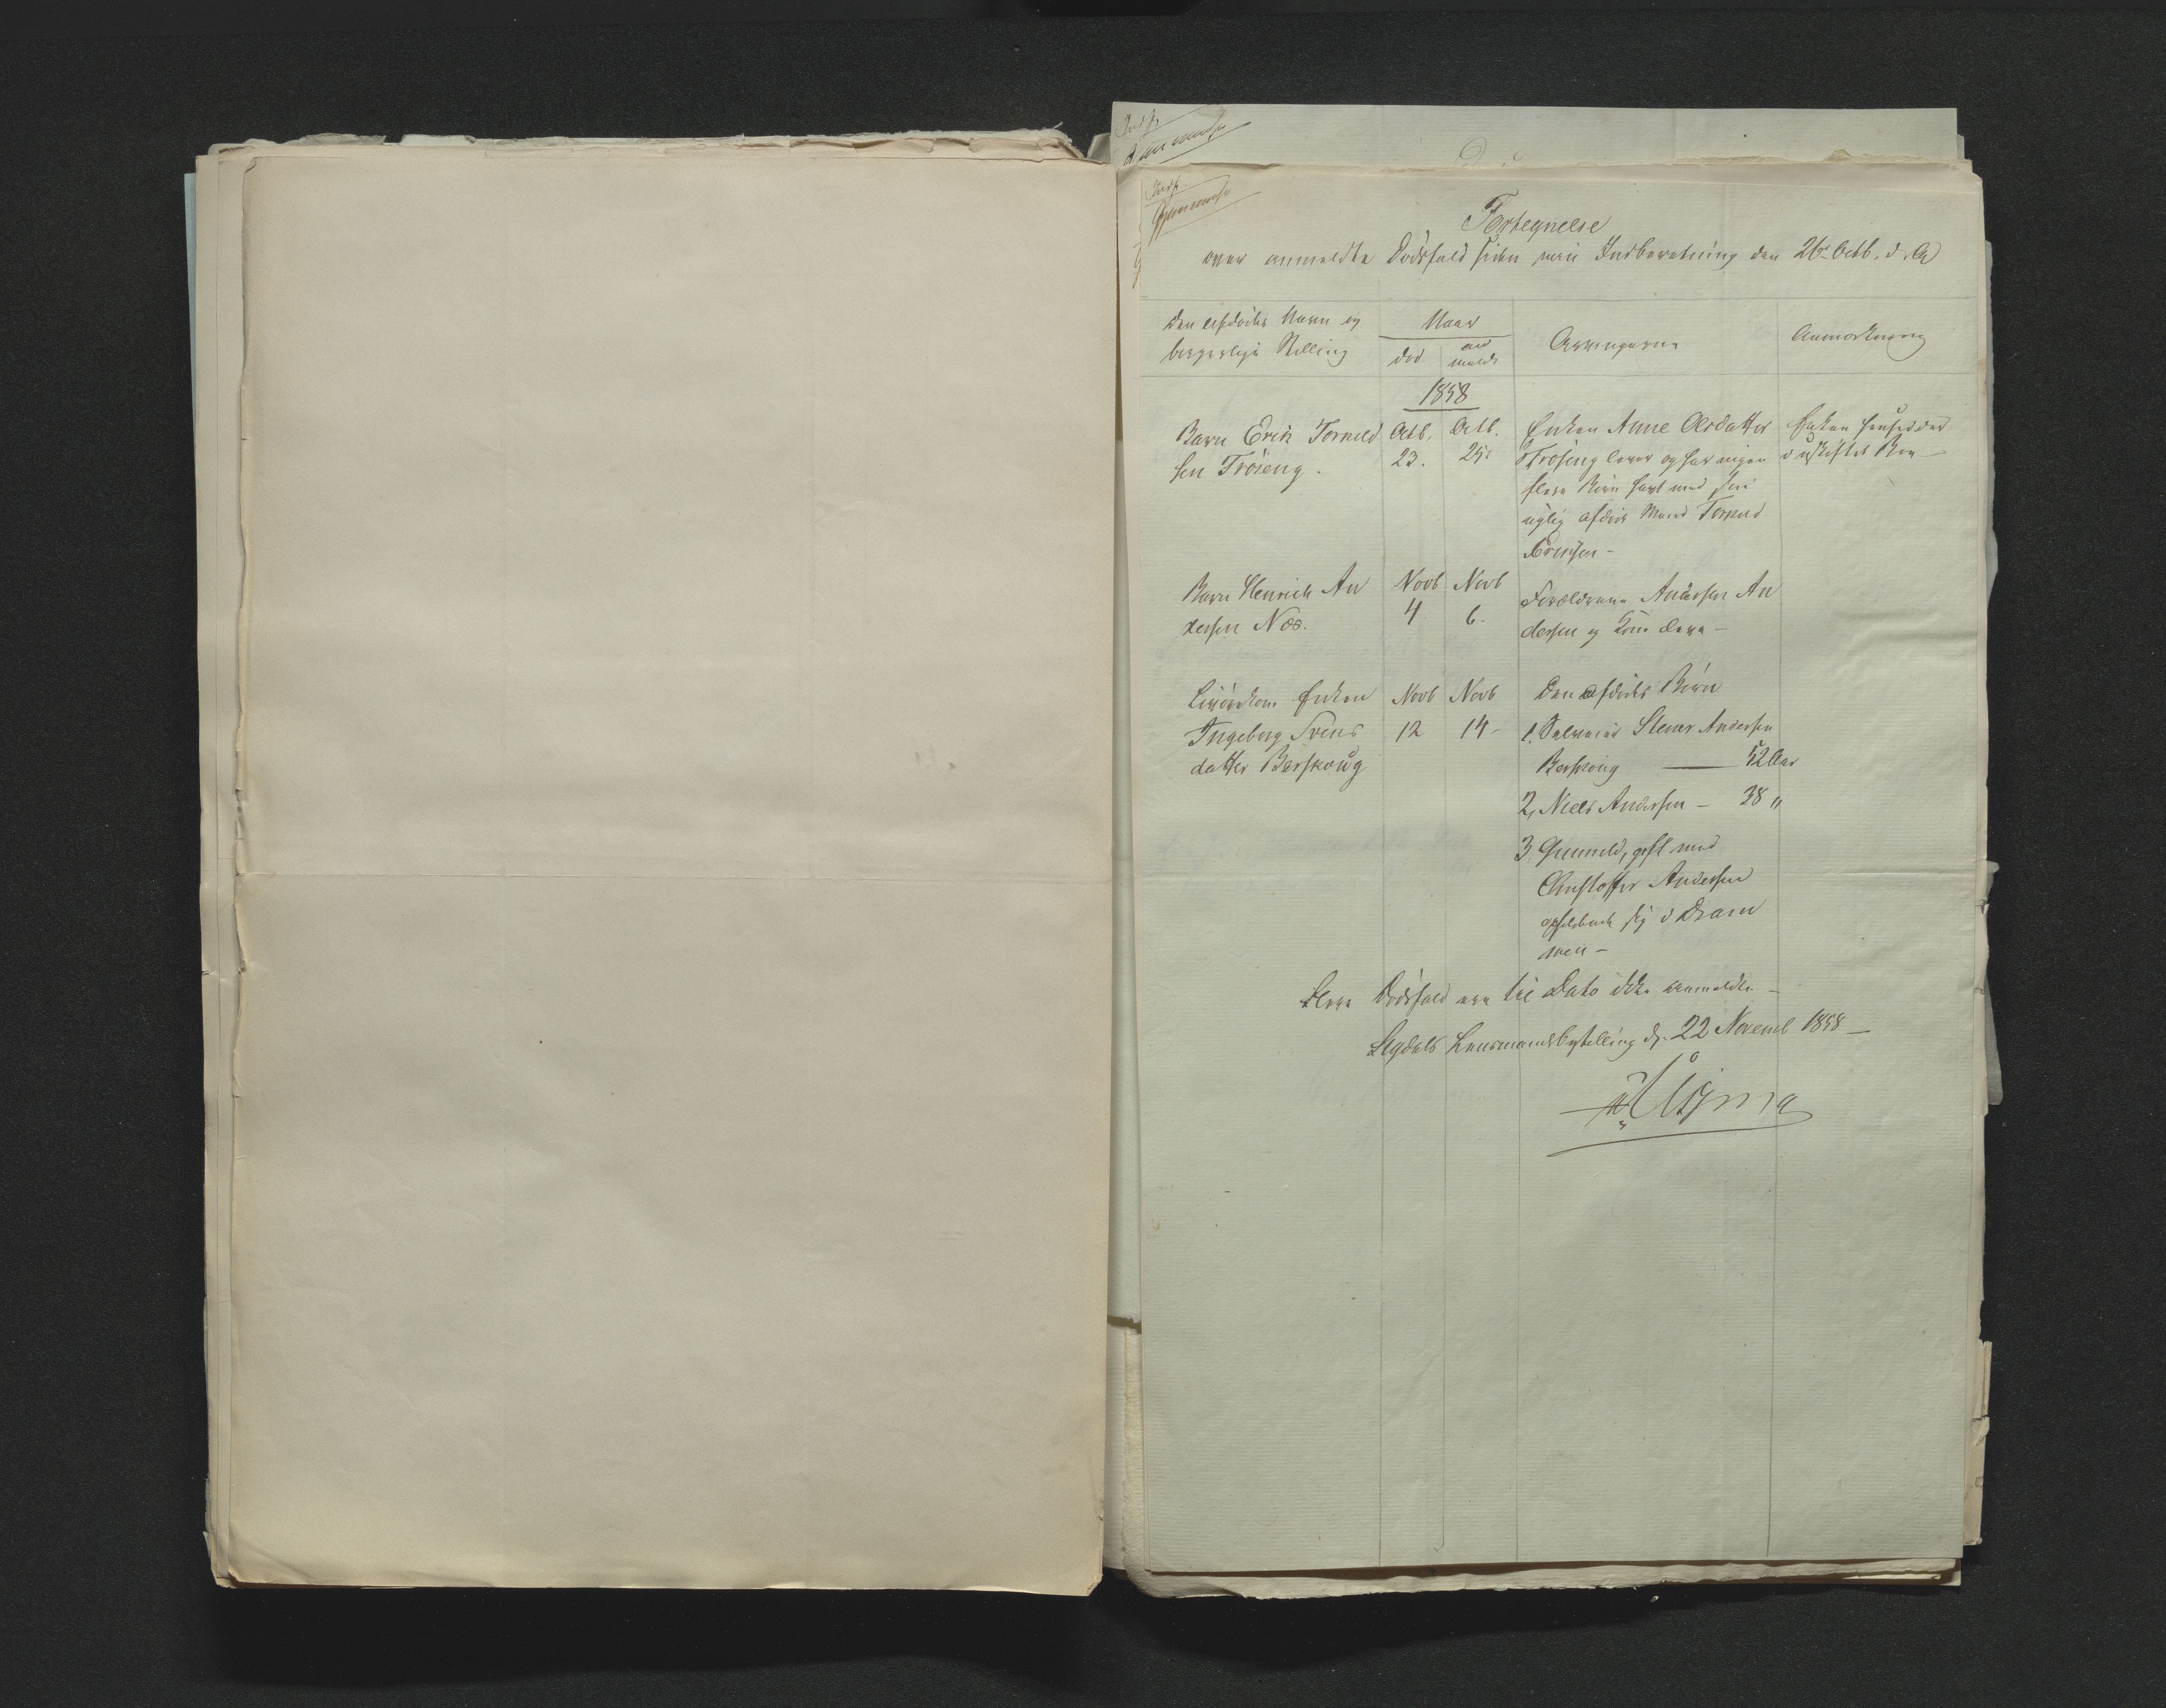 Indf.
Indf.
Fortegnelse
over anmeldte Dödsfald siden min Indberetning den 26de Octb. d. A
Den afdödes Navn og
borgerlige Stilling
Naar
död
an
meldt
Arvingerne
Anmærkning
1858
Barn Erik Torkild
sen Tröieng.
Octb.
23.
Octb.
25
Enken Anne Olsdatter
Tröieng lever og har ingen
flere Börn havt med sin
afdöde Mand Torkild
Eriksen -
Enken hensidder
i uskiftet Bo -
Barn Henrich An
dersen Næs.
Novb
4
Novb
6.
Forældrene Andersen An
dersen og Kone lever -
Enken
Ingeborg Svens
datter Berskoug
Novb
12
Novb
14 -
Den afdödes Börn
1. Stener Andersen
Berskoug — 52 Aar
2, Niels Andersen - 38 "
3 Gunnild, gift med
Christoffer Andersen
opholdende sig i Dram
men -
Flere Dödsfald ere til Dato ikke anmeldte -
Sigdals Lensmandsbestilling d. 22 Novemb 1858 -